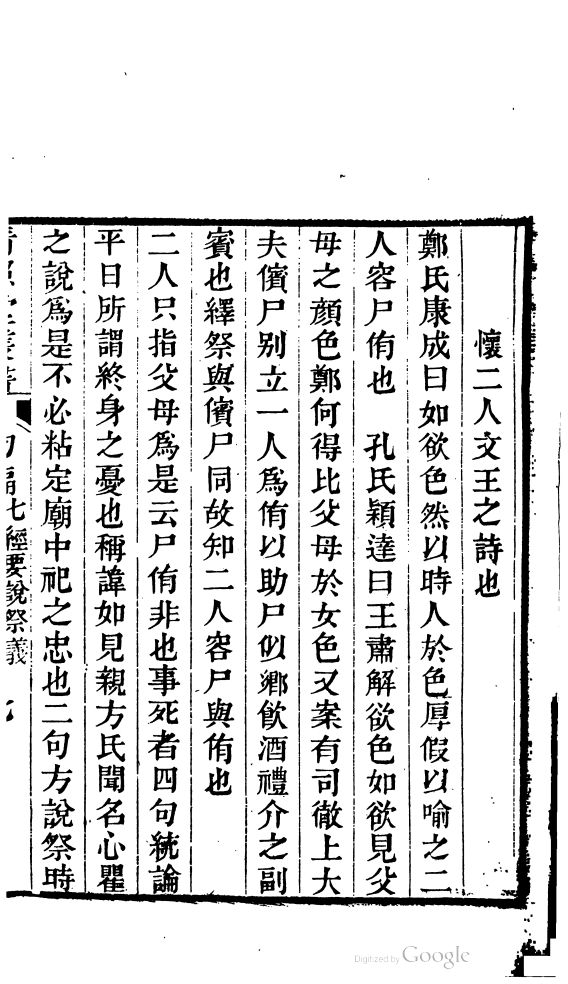 懷二人文王之詩也
鄭氏康成曰如欲色然以時人於色厚假以喻之二
人容尸侑也　孔氏穎達曰王肅解欲色如欲見父
母之顏色鄭何得比父母於女色又案有司徹上大
夫儐尸別立一人爲侑以助尸似鄉飮酒禮介之副
賓也繹祭與儐尸同故知二人容尸與侑也
二人只指父母爲是云尸侑非也事死者四句統論
平日所謂終身之憂也稱諱如見親方氏聞名心瞿
之說爲是不必粘定廟中祀之忠也二句方說祭時
七經要說祭義
Digitized by Google